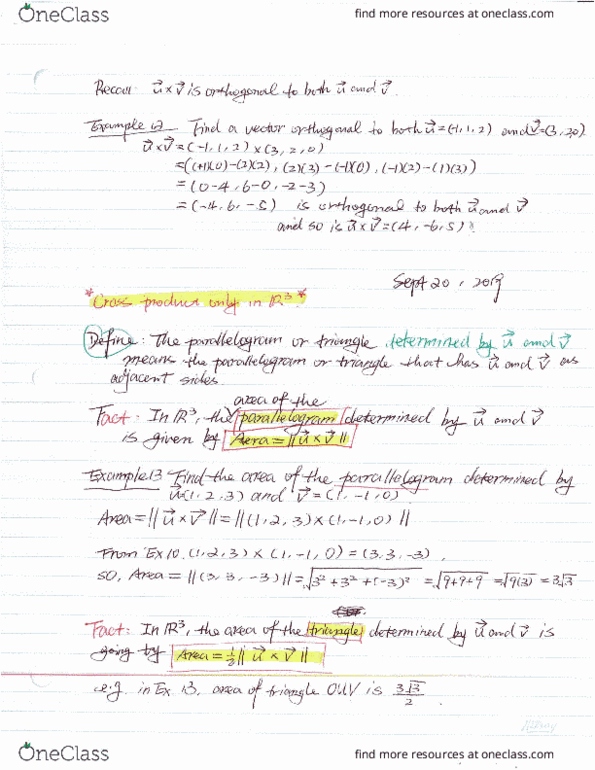 OneClass
find more resources at oneclass.com
Recall: u⃗×v⃗ is orthogonal to both u⃗ and v⃗.
Example 12 Find a vector orthogonal to both u⃗=(-1,1,2) and v⃗=(3,2,0).
u⃗×v⃗=(-1,1,2)×(3,2,0)
=((+1)(0)-(2)(2), (2)(3)-(-1)(0), (-1)(2)-(1)(3))
=(0-4, 6-0, -2-3)
=(-4, 6, -5) is orthogonal to both u⃗ and v⃗
and so is u⃗×v⃗=(4, -6, 5).
Sept 20, 2019
*Cross product only in ℝ³*
Define: The parallelogram or triangle determined by u⃗ and v⃗
means the parallelogram or triangle that has u⃗ and v⃗ as
adjacent sides.
area of the
Fact: In ℝ³, the parallelogram determined by u⃗ and v⃗
is given by Aera=‖u⃗×v⃗‖
Example 13 Find the area of the parallelogram determined by
u⃗=(1,2,3) and v⃗=(1,-1,0).
Area=‖u⃗×v⃗‖=‖(1,2,3)×(1,-1,0)‖
From Ex10. (1,2,3)×(1,-1,0)=(3,3,-3).
so, Area=‖(3,3,-3)‖=√3²+3²+(-3)² =√9+9+9 =√9(3) =3√3
Fact: In ℝ³, the area of the triangle determined by u⃗ and v⃗ is
going by Area=½‖u⃗×v⃗‖
e.g. in Ex 13, area of triangle OUV is 3√3/2.
OneClass
find more resources at oneclass.com